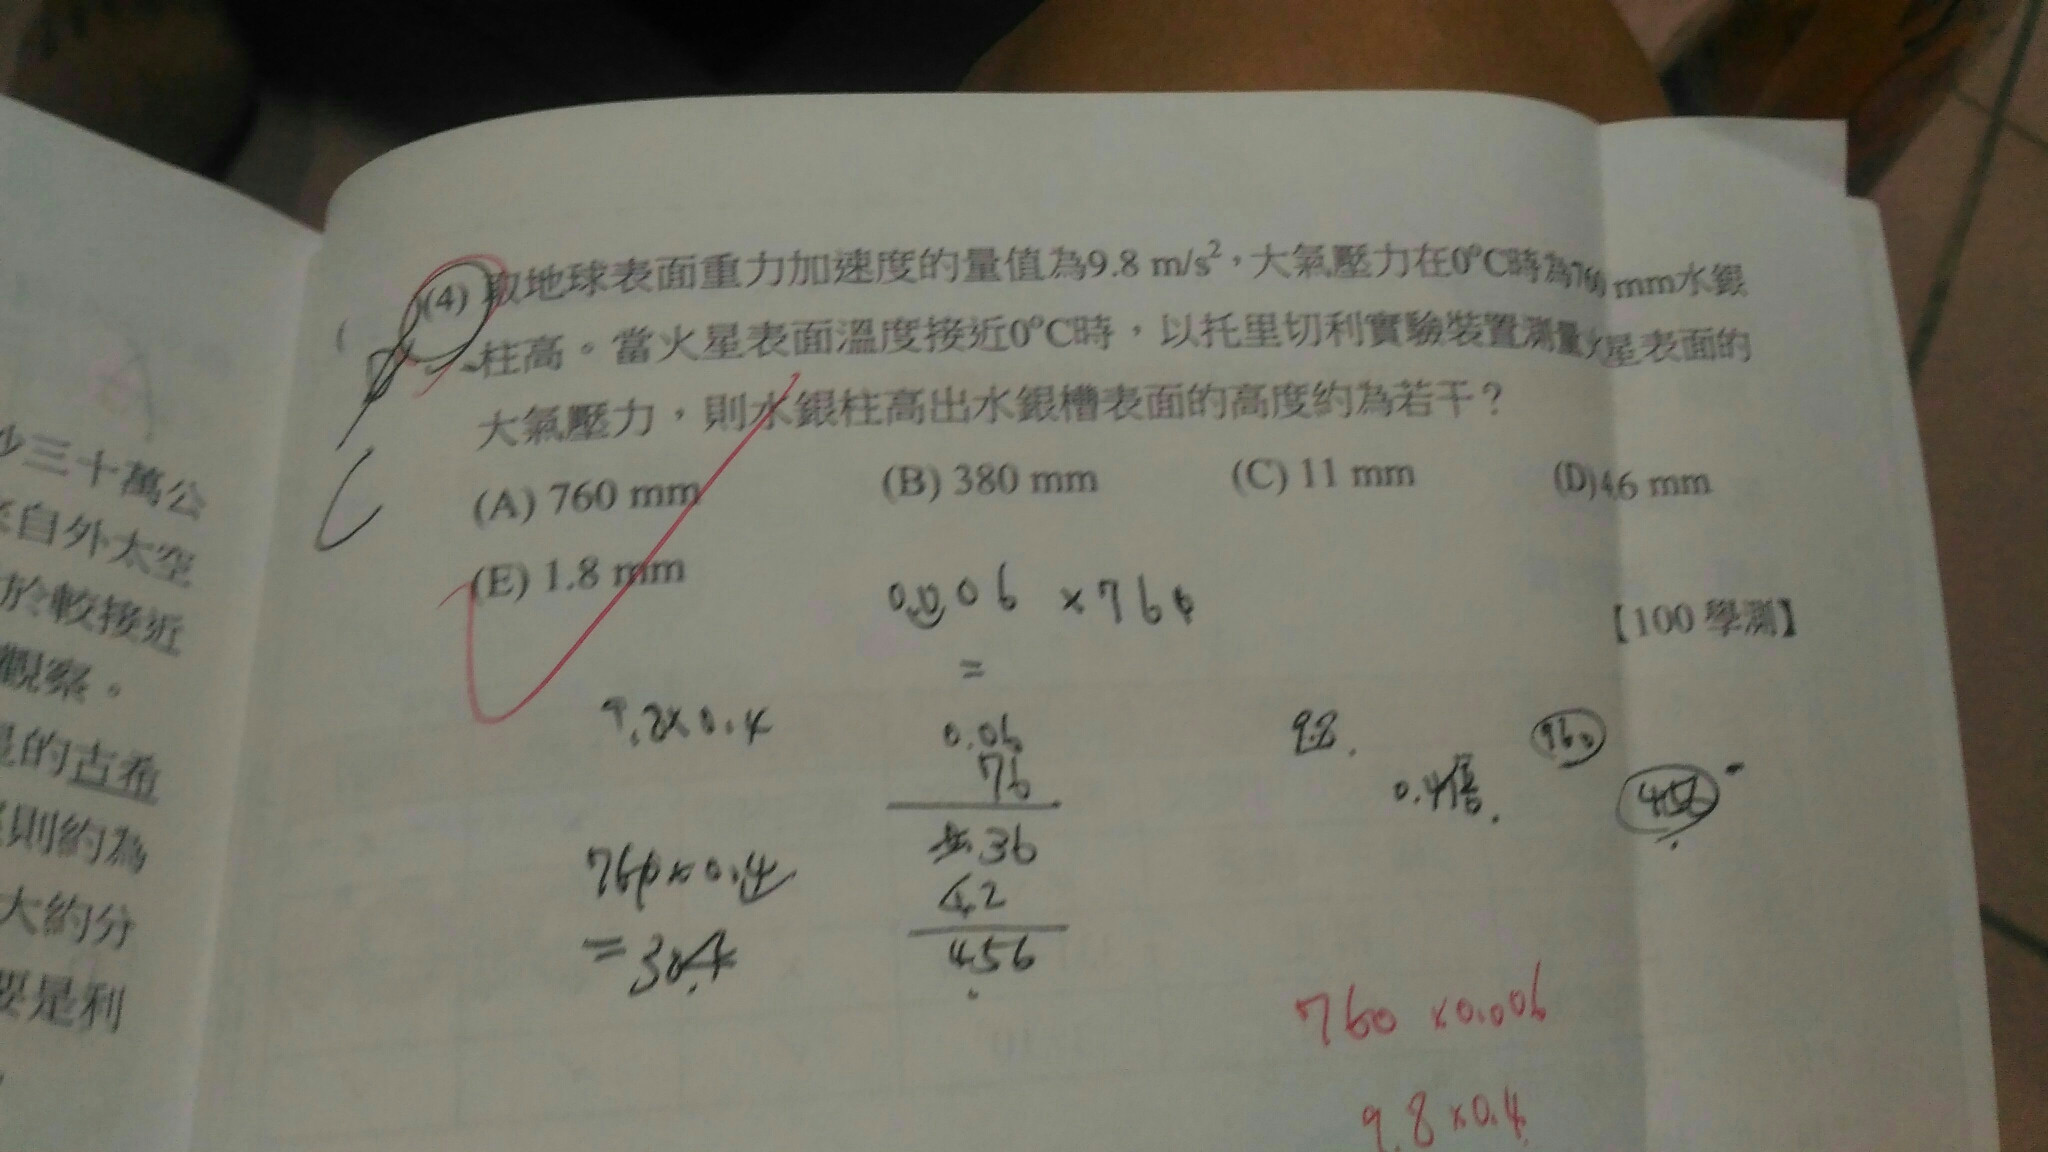 (4) 取地球表面重力加速度的量值為9.8 m/s²，大氣壓力在0°C時為760 mm水銀
柱高。當火星表面溫度接近0°C時，以托里切利實驗裝置測量火星表面的
大氣壓力，則水銀柱高出水銀槽表面的高度約為若干？
(A) 760 mm (B) 380 mm (C) 11 mm (D) 4.6 mm
(E) 1.8 mm
【100 學測】
C
0.006 × 760
=
0.06
76
36
42
456
9.8×0.4
760×0.4
=304
9.8
0.4倍
760
456
760 ×0.006
9.8 ×0.4
三十萬公
自外太空
於較接近
觀察。
的古希
則約為
大約分
要是利